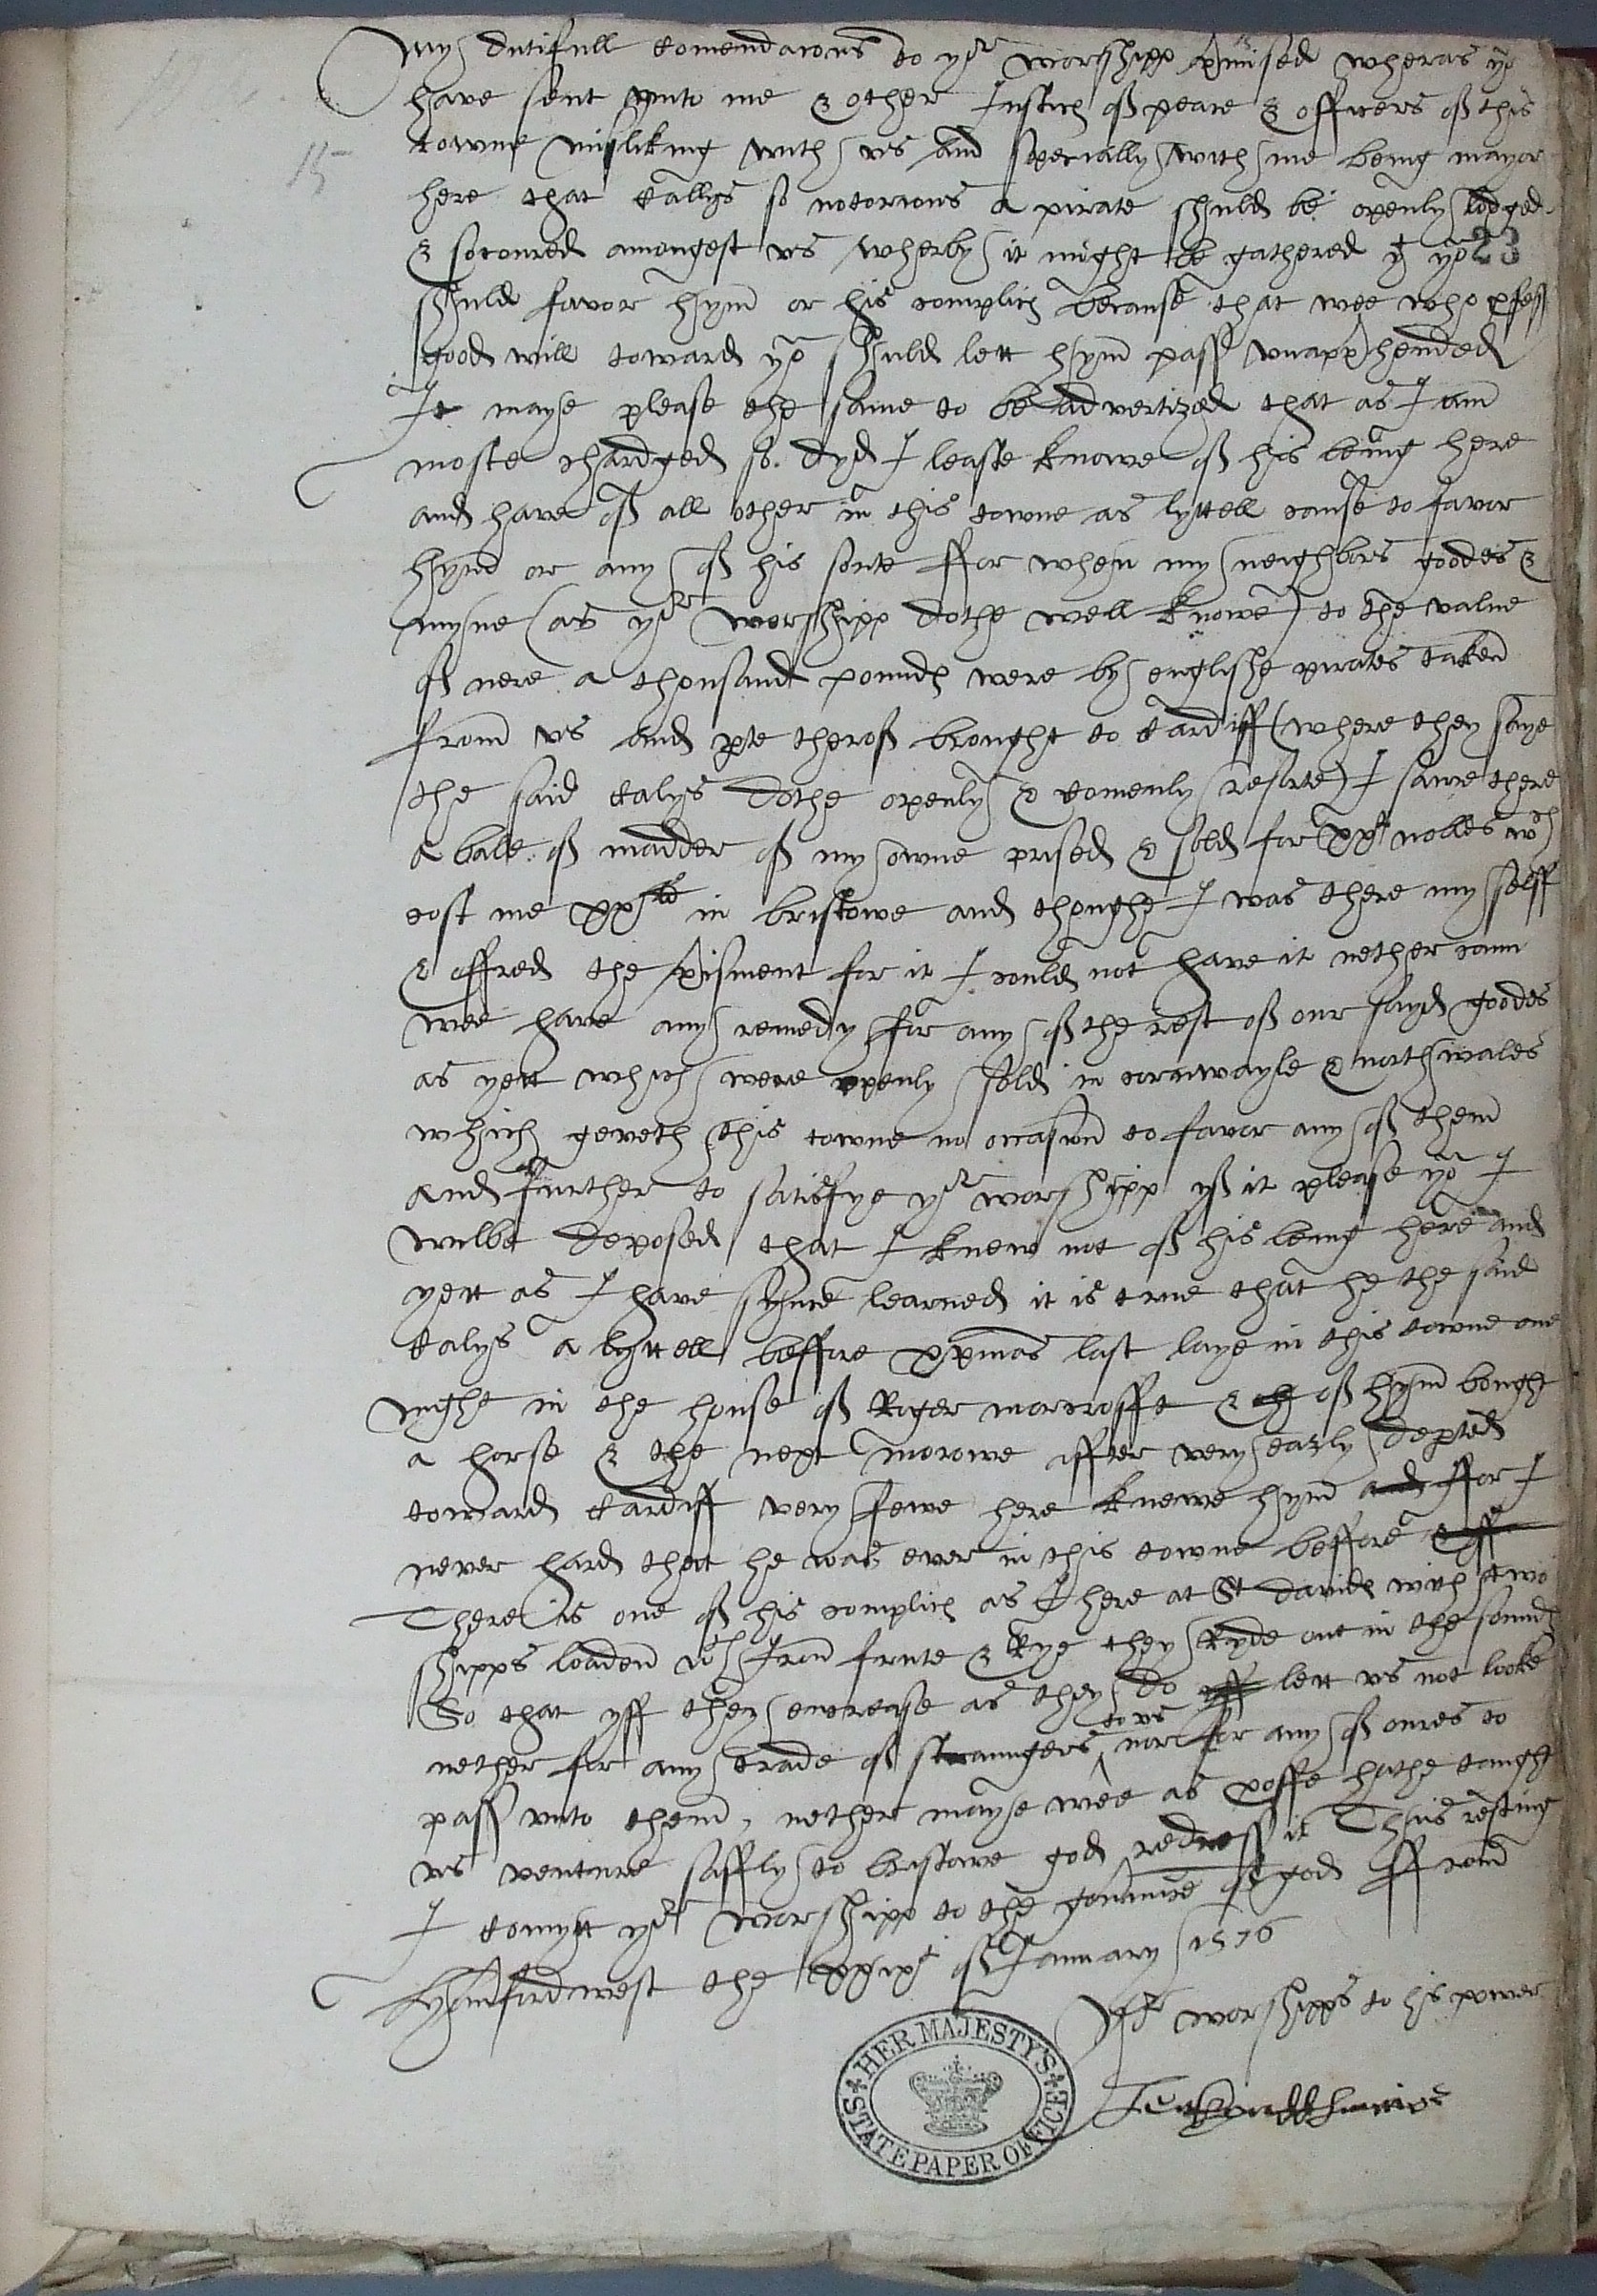 My dutifull comendacons to yor worshipp p'mised wheras yo
have sent vnto me & other Justices of peace & officers of this
15
towne misliking with vs and specially with me being mayor
here that Callys so notorious a pirate shuld be openly lodged
& socoured amongest vs wherby it might be gathered yt yo 23
shuld favor hym or his complices because that wee who pfess
good will toward yo shuld lett hym pass vnapp'hended
It maye please the same to be advertized that as I am
moste chardged so dyd I leaste knowe of his being here
and have of all other in this towne as lyttell cause to favor
hym or any of his sorte ffor when my neighbors goodes &
myne (as yor worshipp dothe well knowe) to the value
of nere a thousand poundes were by englishe pirates taken
from vs and pte therof brought to Cardiff (where they saye
the said Calys dothe openly & comenly resorte) I sawe there
a bale of madder of my owne prised & sold for nobles wch
cost me in bristowe and thoughe I was there my selff
& offred the p'isment for it I could not have it nether cann
wee have any remedy for any of the rest of our sayd goodes
as yett which were openly sold in cornwayle & northwales
which geveth this towne no occasion to favor any of them
and further to satisfye yor worshipp yf it please yo I
wilbe deposed that I knew not of his being here and
yett as I have synce learned it is true that he the said
Calys a lyttell beffore xpmas last laye in this towne one
nyght in the house of Roger marcrofft & of hym bought
a horse & the next morowe affter very early depted
toward Cardiff very fewe here knewe hym and ffor I
never hard that he was ever in this towne beffore
There is one of his complices as I here at St Davides with two
shipps loaden wth Iron frute & Rye they Ryde out in the sound
So that yff they encrease as they do lett vs not looke
nether for any trade of straungers to vs nor for any of oures to
pass vnto them, nether maye wee as proffe hathe taught
vs venture saffly to bristowe god redress it Thus resting
I comytt yor worshipp to the god ffrom
the xxixth of January 1576
Yor worshipps to his power
HER MAJESTY'S STATE PAPER OFFICE